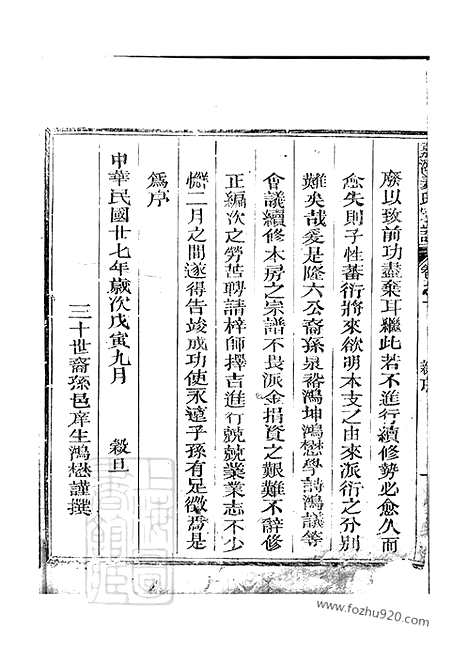 廢以致前功盡棄耳繼此若不進行續修勢必愈久而
愈失則子性蕃衍將來欲明本支之由來派衍之分別
難矣哉爰是隆六公裔孫泉裕鴻坤鴻懋學詩鴻議等
會議續修本房之宗譜不畏派金捐資之艱難不辭修
正編次之勞苦聘請梓師擇吉進行兢兢業業志不少
懈二月之間遂得告竣成功使永遠子孫有足徵焉是
爲序
中華民國廿七年歲次戊寅九月 穀旦
三十世裔孫邑庠生鴻懋謹撰
www.fozhu920.com